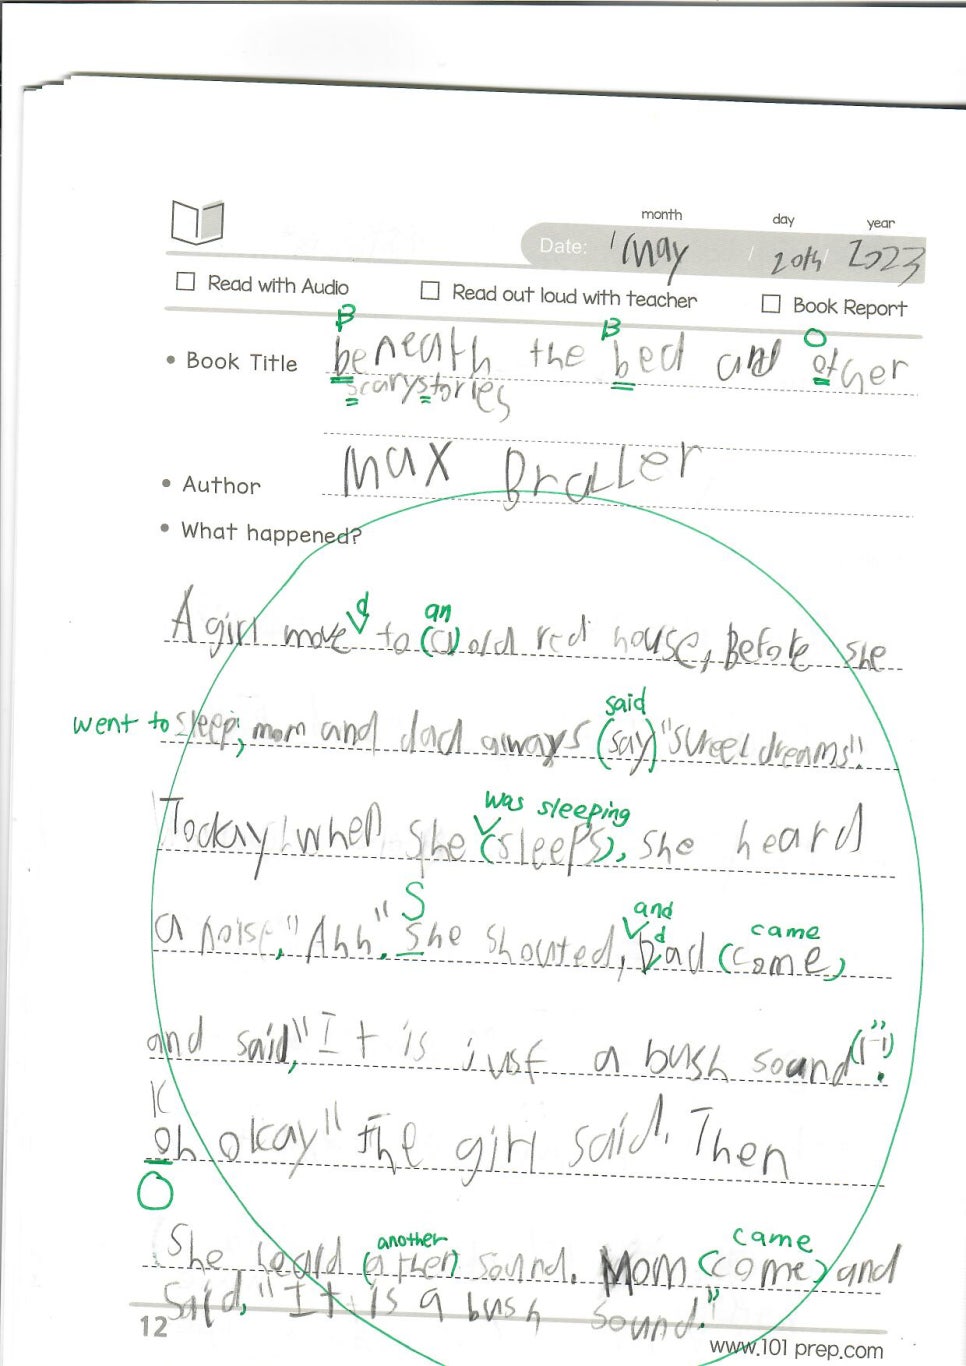 month day year
Date: May / 20th / 2023
Read with Audio Read out loud with teacher Book Report
B B O
• Book Title beneath the bed and other
scary stories
• Author Max Braller
• What happened?
d an
A girl move to (a) old red house, Before she
said
went to sleep, mom and dad always (say) "sweet dreams".
was sleeping
Today, when she (sleeps), she heard
S and came
a noise, "Ahh." she shouted, Dad (come)
d
and said, "It is just a bush sound (!)."
"oh okay" The girl said. Then
O
another came
She heard (a then) sound. Mom (come) and
Said, "It is a bush sound."
12
www.101prep.com